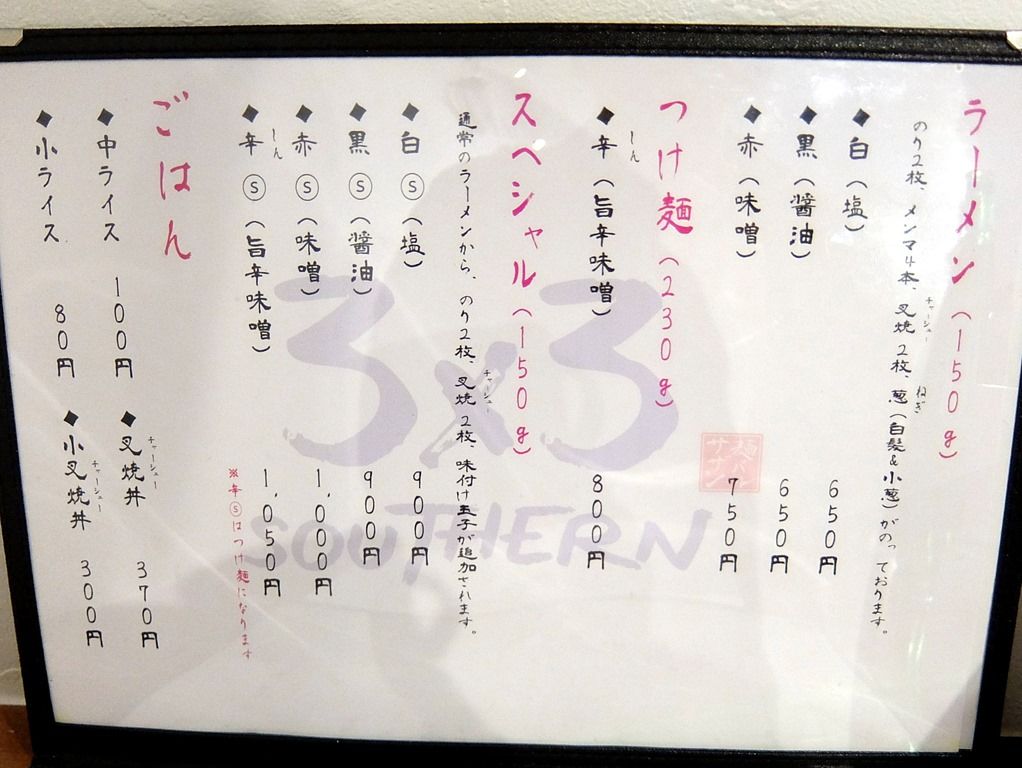 ラーメン（150g）
のり2枚、メンマ4本、叉焼2枚、葱（白髪&小葱）がのっております。
チャーシュー
ねぎ
◆白（塩） 650円
◆黒（醤油） 650円
◆赤（味噌） 750円
つけ麺（230g）
◆辛（旨辛味噌） 800円
しん
スペシャル（150g）
通常のラーメンから、のり2枚、叉焼2枚、味付け玉子が追加されます。
チャーシュー
◆白Ⓢ（塩） 900円
◆黒Ⓢ（醤油） 900円
◆赤Ⓢ（味噌） 1,000円
◆辛Ⓢ（旨辛味噌） 1,050円
しん
※辛Ⓢはつけ麺になります
ごはん
◆中ライス 100円
◆小ライス 80円
◆叉焼丼 370円
チャーシュー
◆小叉焼丼 300円
チャーシュー
3x3
SOUTHERN
麺バル
ササン